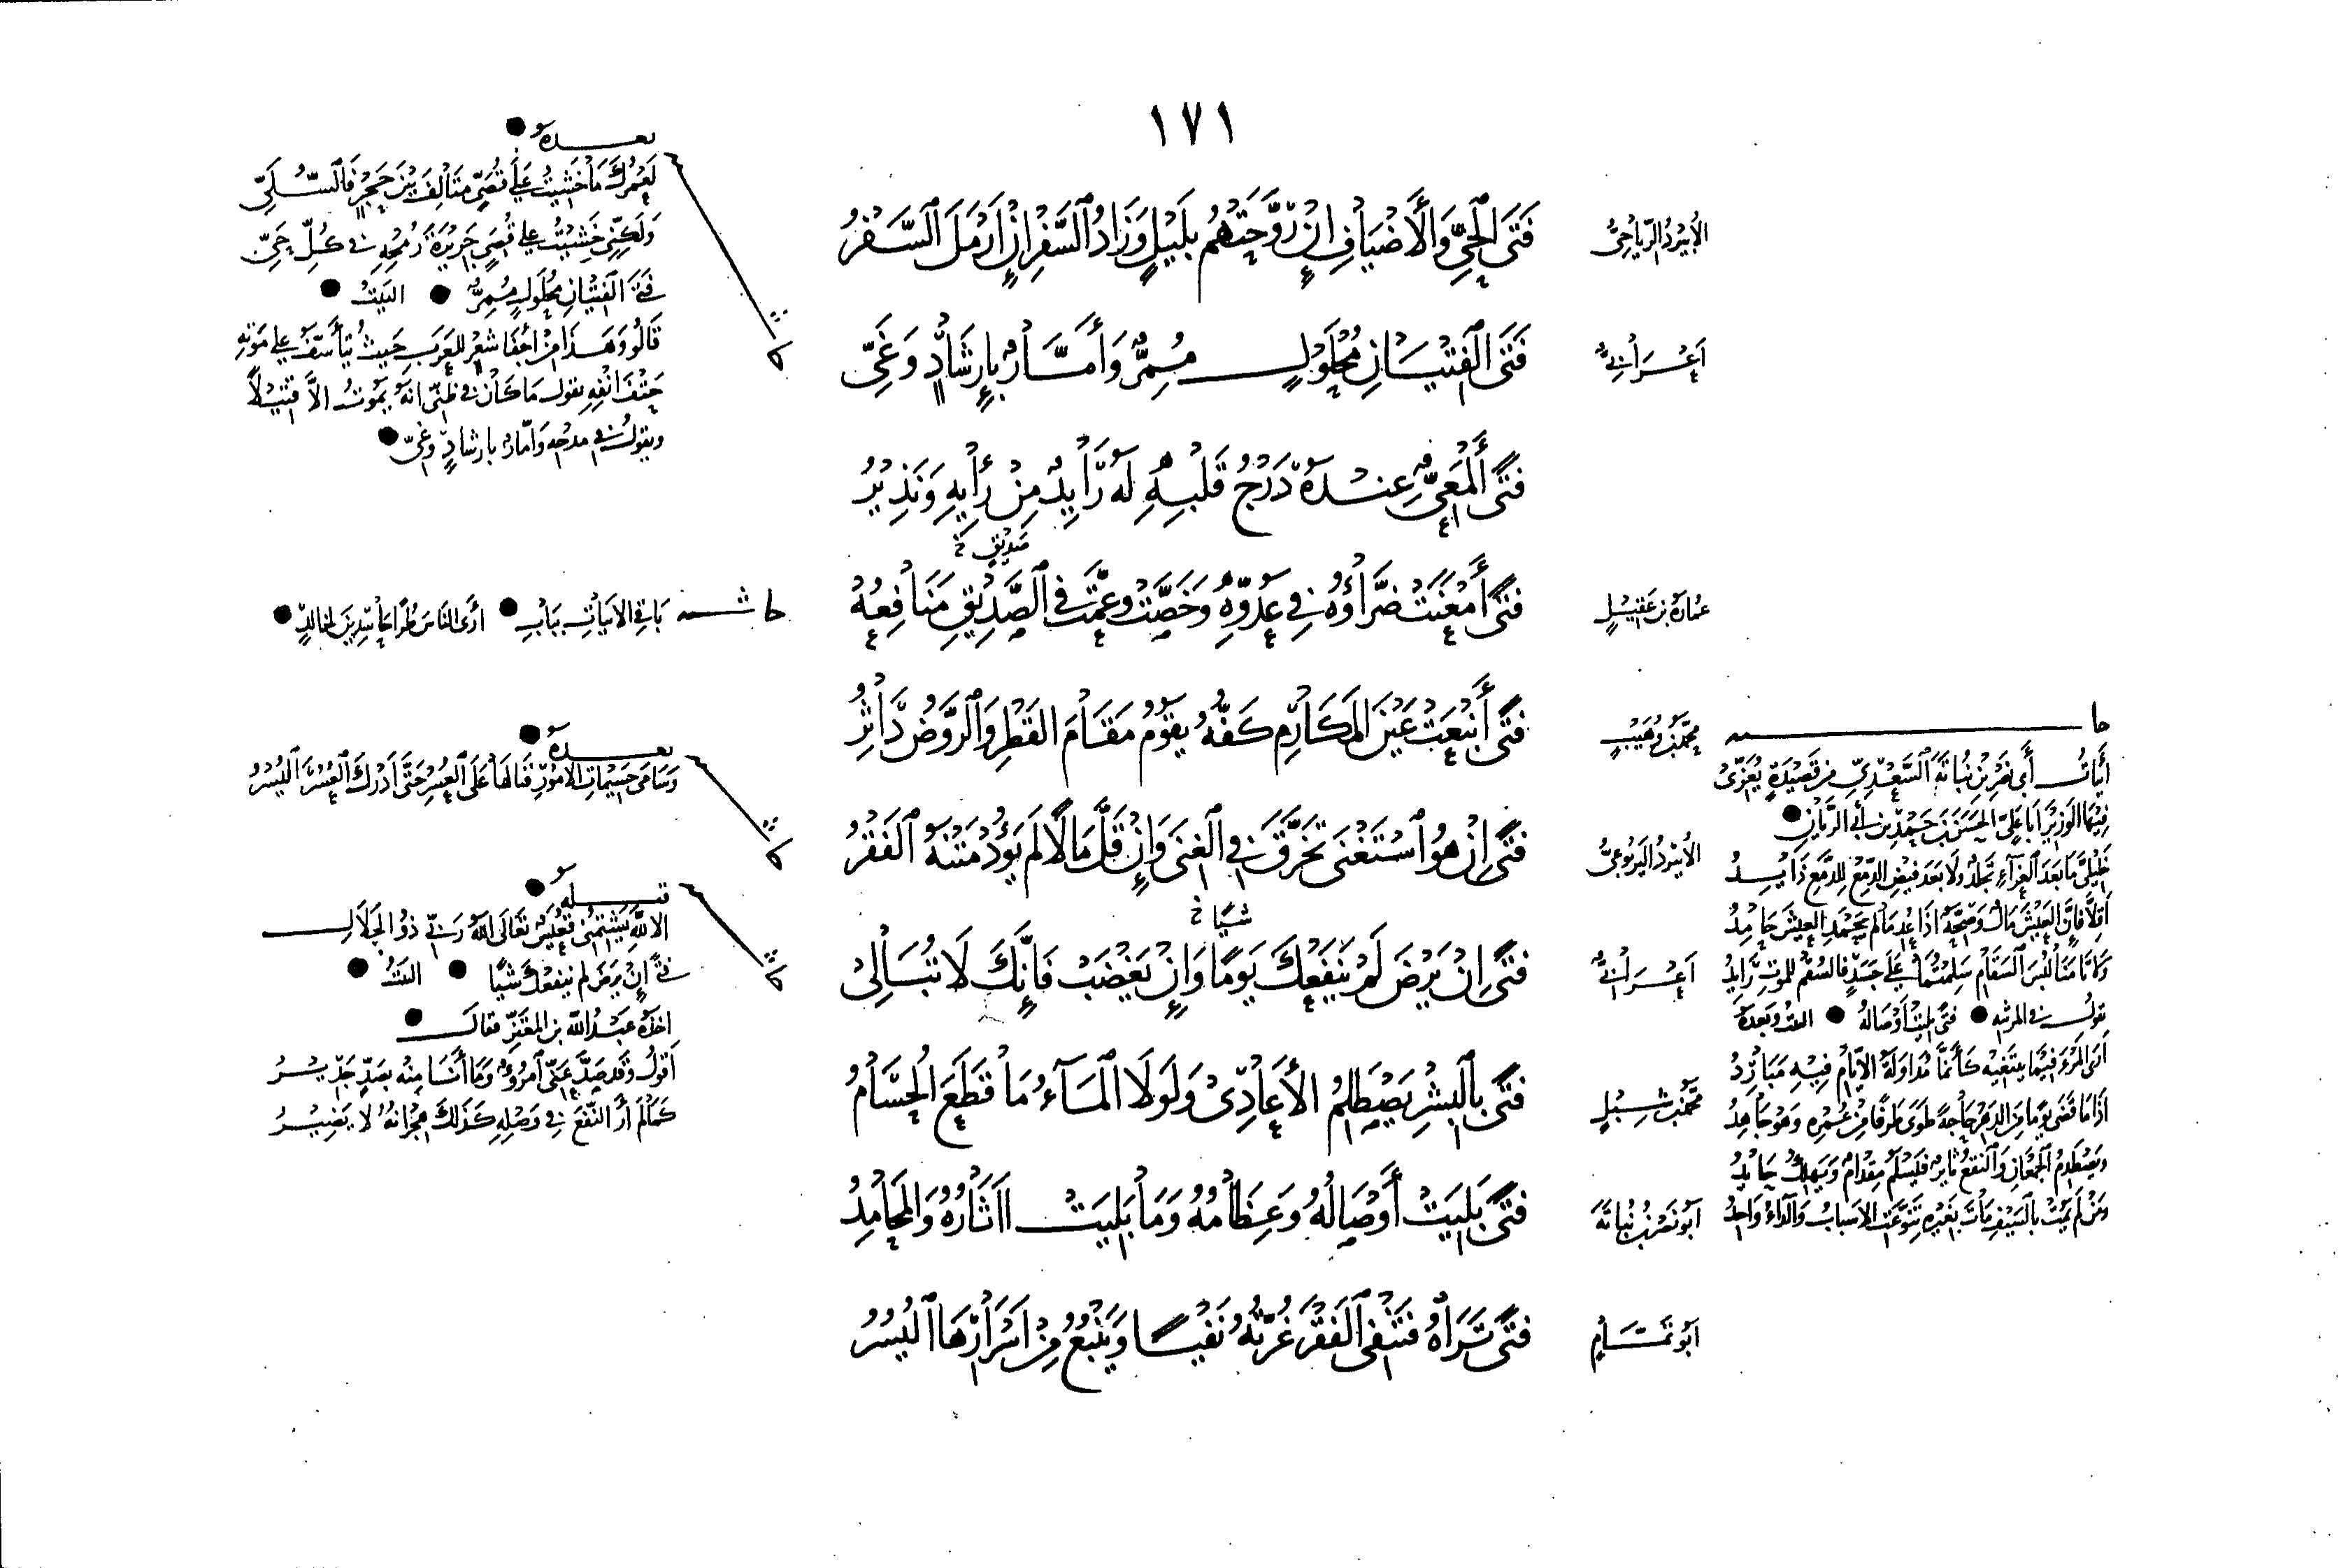 ١٧١
الأُبَيْرِدُ الرِّيَاحِيُّ
فَتَى الْحَيِّ وَالْأَضْيَافِ إِنْ رَوَّحَتْهُمُ بَلِيْلٌ وَزَادُ السَّفْرِ إِنْ أَرْمَلَ السَّفْرُ
أَعْرَابِيٌّ
فَتَى الْفِتْيَانِ مُحْلَوْلٍ مُمِرٌّ وَأَمَّارٌ بِإِرْشَادٍ وَغَيِّ
فَتًى أَلْمَعِيٌّ عِنْدَهُ دَرْجُ قَلْبِهِ لَهُ رَايِدٌ مِنْ رَأْيِهِ وَنَذِيْرُ
صَدِيْقٍ خ
عُمَارَةُ بن عَقِيْلٍ
فَتًى أَمْعَنَتْ ضَرَّاؤُهُ فِي عَدُوِّهِ وَخَصَّتْ وَعَمَّتْ فِي الصَّدِيْقِ مَنَافِعُهْ
مُحَمَّدُ بنُ وُهَيْبٍ
فَتًى أَنْبَعَتْ عَيْنَ الْمَكَارِمِ كَفُّهُ يَقُوْمُ مَقَامَ القَطْرِ وَالرَّوْضُ دَاثِرُ
الأُبَيْرِدُ الْيَرْبُوْعِيُّ
فَتًى إِنْ هُوَ اسْتَغْنَى تَخَرَّقَ فِي الْغِنَى وَإِنْ قَلَّ مَالًا لَمْ يَؤُدْ مَتْنَهُ الْفَقْرُ
شَيْئًا خ
أَعْرَابِيٌّ
فَتًى إِنْ يَرْضَ لَمْ يَنْفَعْكَ يَوْمًا وَإِنْ يَغْضَبْ فَإِنَّكَ لَا تُبَالِيْ
مُحَمَّدُ بنُ شِبْلٍ
فَتًى بِالْبِشْرِ يَصْطَلِمُ الأَعَادِيْ وَلَوْلَا الْمَآءُ مَا قَطَعَ الْحُسَامُ
أَبُو نَصْرٍ بنُ نُبَاتَةَ
فَتًى بَلِيَتْ أَوْصَالُهُ وَعِظَامُهُ وَمَا بَلِيَتْ آثَارُهُ وَالْمَحَامِدُ
أَبُو تَمَّامٍ
فَتًى تَرَاهُ فَتَنْفِي الْفَقْرَ غُرَّتُهُ نَفْيًا وَيَنْبُعُ مِنْ أَسْرَارِهَا الْيُسْرُ
بعده
لَعَمْرُكَ مَا خَشِيْتُ عَلَى قُصَيٍّ مَتَالِفَ بَيْنَ حَجْرٍ فَالسُّلَيِّ
وَلَكِنِّي خَشِيْتُ عَلَى قُصَيٍّ جَرِيْرَةَ رُمْحِهِ فِي كُلِّ حَيِّ
فَتَى الْفِتْيَانِ مُحْلَوْلٍ مُمِرٌّ البَيْتُ
قَالُوا وَهَذَا مِنْ أَجْفَا شِعْرٍ لِلْعَرَبِ حَيْثُ يَتَأَسَّفُ عَلَى مَوْتِهِ
حَتْفَ أَنْفِهِ يَقُولُ مَا كَانَ فِي ظَنِّي أَنَّهُ يَمُوتُ إِلَّا قَتِيْلًا
وَيَقُولُ فِي مَدْحِهِ وَأَمَّارٌ بِإِرْشَادٍ وَغَيِّ
حاشية بَاقِي الأَبْيَاتِ بِبَابِ أَرَى النَّاسَ طُرًّا حَامِدِيْنَ لِخَالِدٍ
بعده
وَسَامَى جَسِيْمَاتِ الأُمُوْرِ فَنَالَهَا عَلَى الْعُسْرِ حَتَّى أَدْرَكَ الْعُسْرَ الْيُسْرُ
قبله
أَلَا لِلَّهِ يَشْتِمُنِي تَعَالَى اللَّهُ رَبِّي ذُو الْجَلَالِ
فَتًى إِنْ يَرْضَ لَمْ يَنْفَعْكَ شَيْئًا البَيْتُ
أَخَذَهُ عَبْدُ اللَّهِ بن الْمُعْتَزِّ فَقَالَ
أَقُولُ وَقَدْ صَدَّ عَنِّي امْرُؤٌ وَمَا أَنَا مِنْهُ بِصَدٍّ جَدِيْرُ
كَمَا لَمْ أَرَ النَّفْعَ فِي وَصْلِهِ كَذَلِكَ هِجْرَانُهُ لَا يَضِيْرُ
حاشية
أَبْيَاتُ أَبِي نَصْرِ بْنِ نُبَاتَةَ السَّعْدِيِّ مِنْ قَصِيْدَةٍ يُعَزِّي
فِيْهَا الْوَزِيْرَ أَبَا عَلِيٍّ الْحَسَنَ بنَ حَمْدِ بن أَبِي الرَّيَّانِ
خَلِيْلَيَّ مَا بَعْدَ الْعَزَاءِ تَجَلُّدٌ وَلَا بَعْدَ فَيْضِ الدَّمْعِ لِلدَّمْعِ ذَايِدُ
أَقِلَّا فَإِنَّ الْعَيْشَ مَالٌ وَصِحَّةٌ إِذَا عُدِمَا لَمْ يَحْمَدِ الْعَيْشَ حَامِدُ
وَكَانَا مَنَالُبْسَ السَّقَامِ سَلِمْتُمَا عَلَى جَسَدٍ فَالسُّقْمُ لِلْمَوْتِ رَايِدُ
يَقُولُ فِي الْمَرْثِيَةِ فَتًى بَلِيَتْ أَوْصَالُهُ البَيْتُ وَبَعْدَهُ
أَرَى الْمَرْءَ فِيْمَا يَبْتَغِيْهِ كَأَنَّمَا مُدَاوَلَةُ الأَيَّامِ فِيْهِ مَبَارِدُ
إِذَا مَا قَضَى يَوْمًا مِنَ الدَّهْرِ حَاجَةً طَوَى طَرَفًا مِنْ عُمْرِهِ وَهْوَ جَاهِدُ
وَيَصْطَدِمُ الْجَمْعَانِ وَالنَّقْعُ ثَايِرٌ فَيَسْلَمُ مِقْدَامٌ وَيَهْلِكُ حَايِدُ
وَمَنْ لَمْ يَمُتْ بِالسَّيْفِ مَاتَ بِغَيْرِهِ تَنَوَّعَتِ الأَسْبَابُ وَالدَّاءُ وَاحِدُ